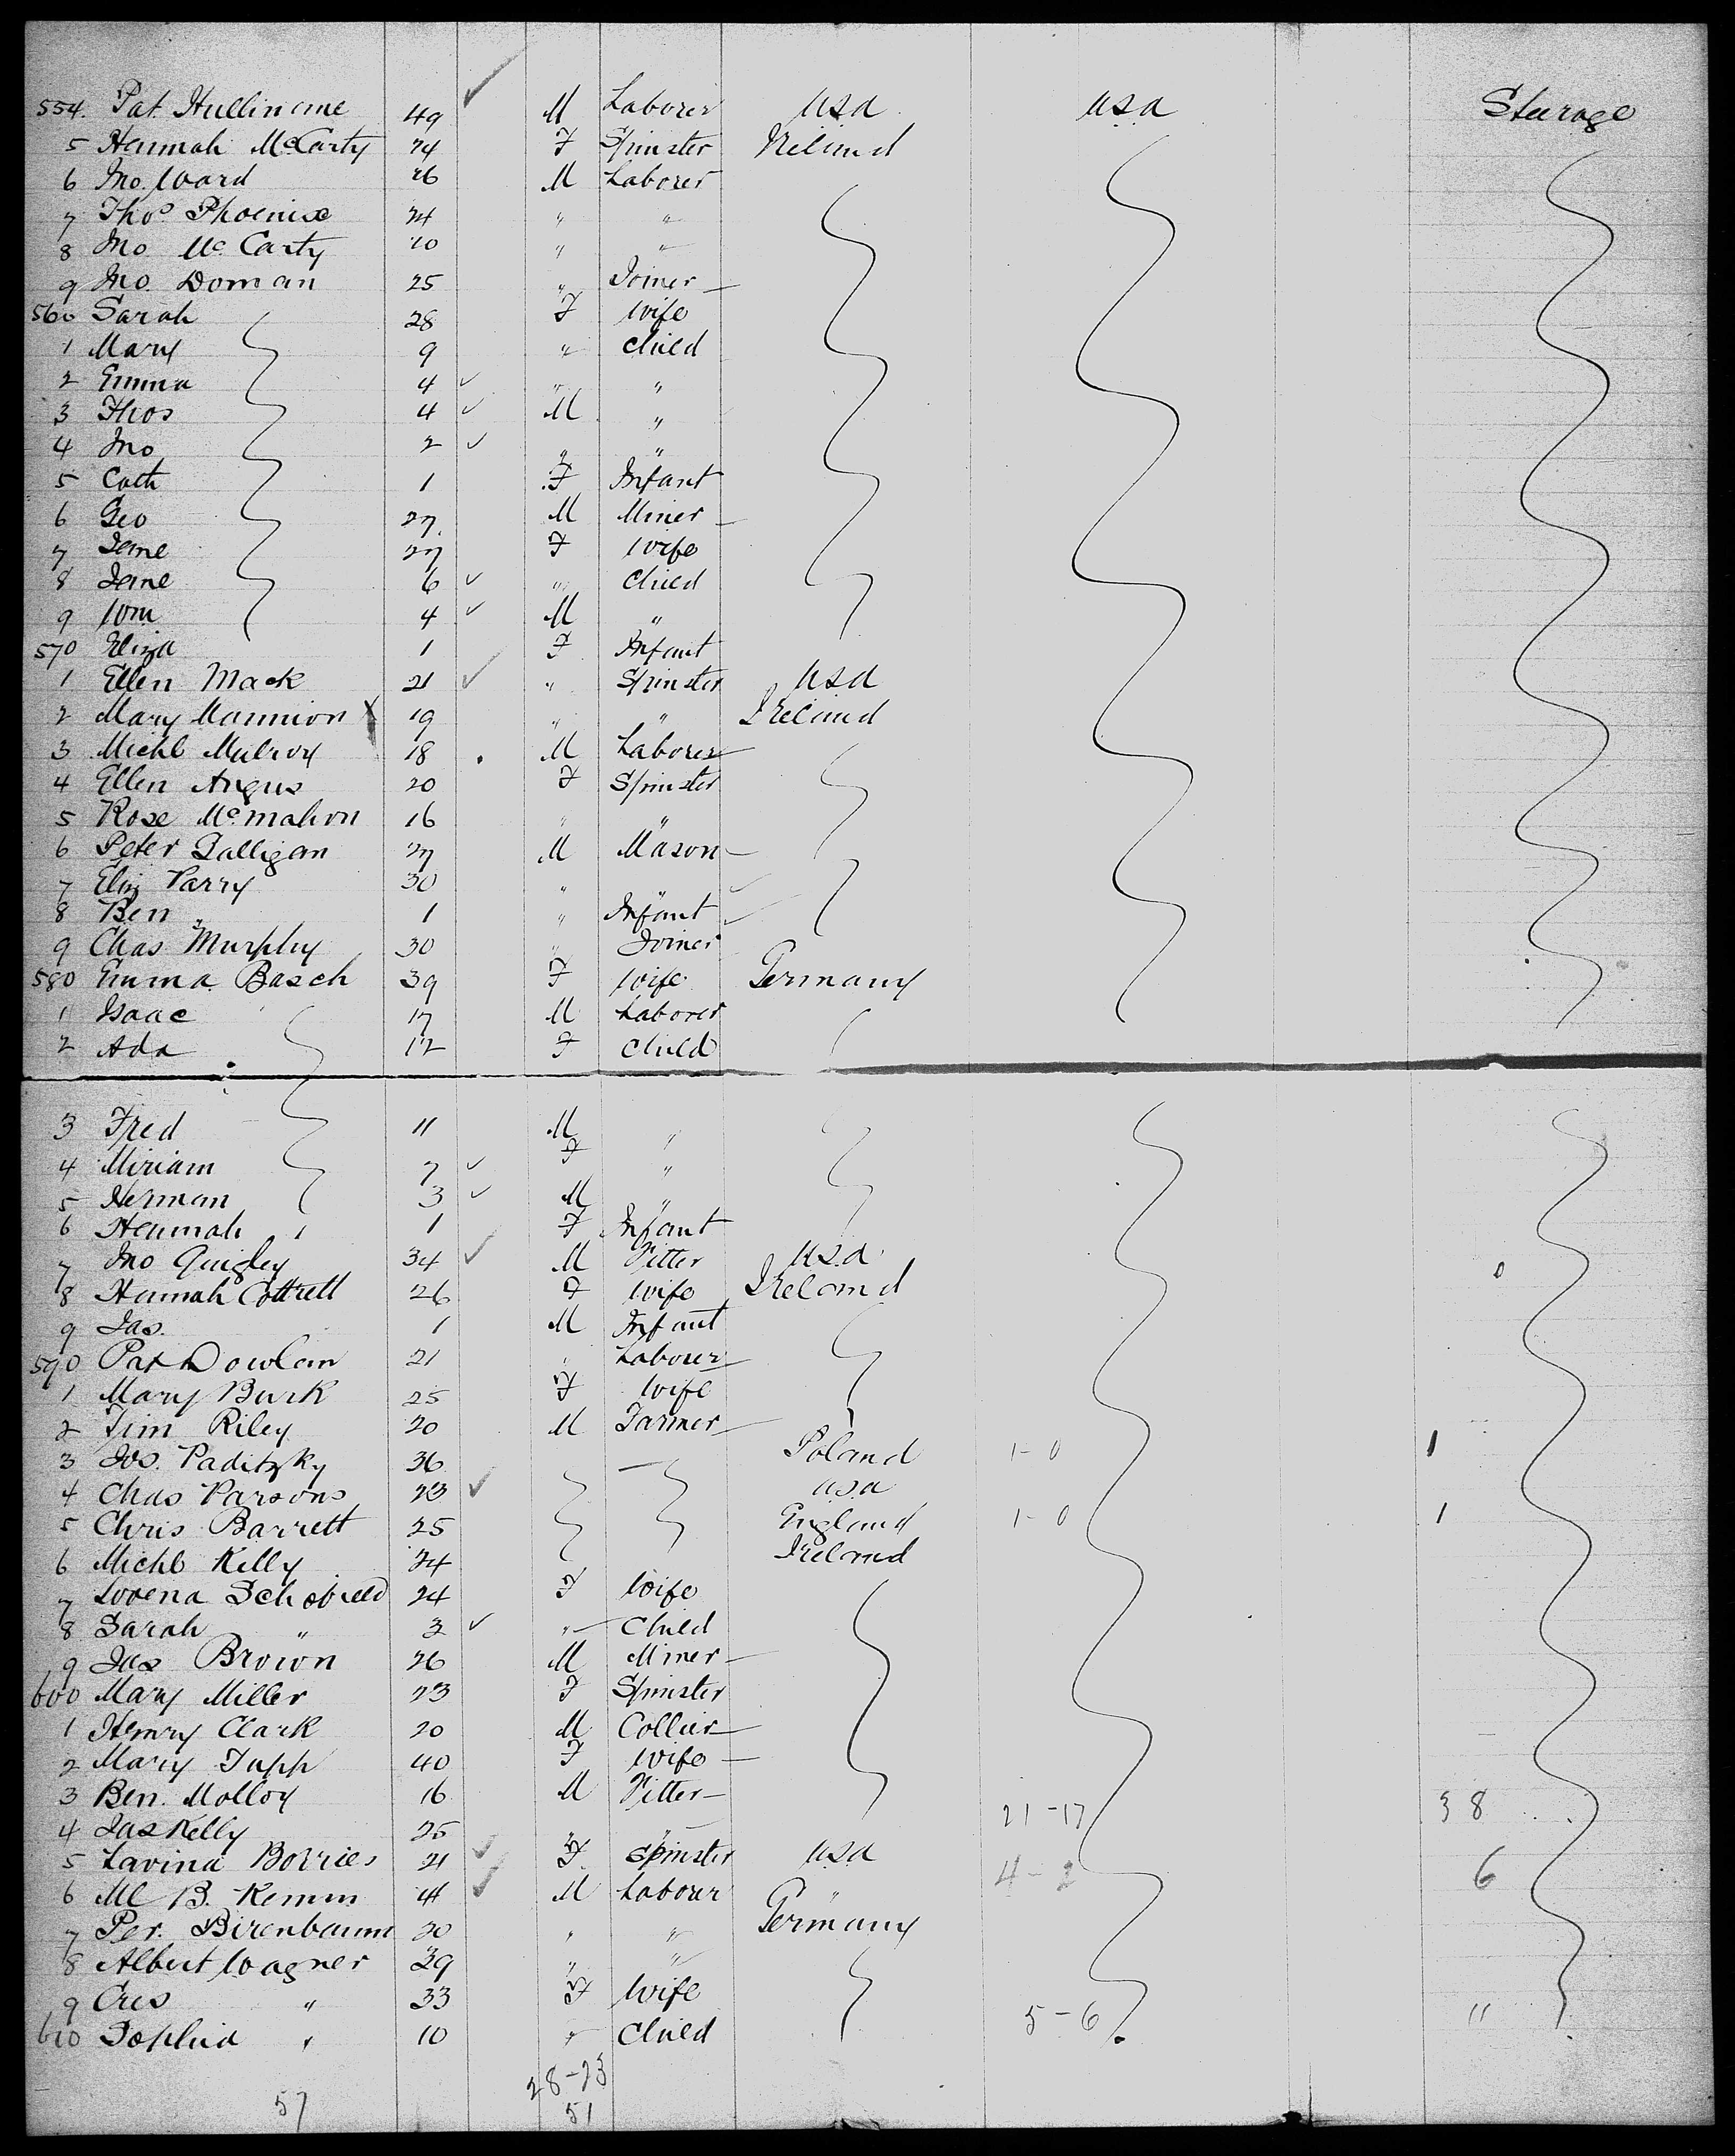 554. Pat. Hullinane 49 M Laborer USA USA Steerage
5 Hannah McCarty 24 F Spinster Ireland
6 Jno. Ward 26 M Laborer
7 Thos Phoenix 24 " "
8 Jno McCarty 20 " "
9 Jno. Doman 25 " Joiner
560 Sarah 28 F Wife
1 Mary 9 " Child
2 Emma 4 " "
3 Thos 4 M "
4 Jno 2 " "
5 Cath 1 F Infant
6 Geo 27 M Miner
7 Jane 27 F Wife
8 Jane 6 " Child
9 Wm 4 M "
570 Eliza 1 F Infant
1 Ellen Mack 21 " Spinster USA
2 Mary Mannion X 19 " " Ireland
3 Michl Mulroy 18 M Laborer
4 Ellen Angus 20 F Spinster
5 Rose McMahon 16 " "
6 Peter Galligan 27 M Mason
7 Eliz Parry 30 " "
8 Ben " 1 " Infant
9 Chas Murphy 30 " Joiner
580 Emma Basch 39 F Wife Germany
1 Isaac 17 M Laborer
2 Ada 12 F Child
3 Fred 11 M "
4 Miriam 7 F "
5 Herman 3 M "
6 Hannah 1 F Infant
7 Jno Quigley 34 M Fitter USA
8 Hannah Cottrell 26 F Wife Ireland
9 Jas. 1 M Infant
590 Pat Dowlan 21 " Laborer
1 Mary Burk 25 F Wife
2 Tim Riley 20 M Farmer
3 Jos. Paditzky 36 Poland 1-0 1
4 Chas Parsons 23 USA
5 Chris Barrett 25 England 1-0 1
6 Michl Kelly 24 Ireland
7 Lovena Schofield 24 F Wife
8 Sarah " 3 " Child
9 Jas Brown 26 M Miner
600 Mary Miller 23 F Spinster
1 Henry Clark 20 M Collier
2 Mary Tupp 40 F Wife
3 Ben. Molloy 16 M Fitter 21-17 38
4 Jas Kelly 25 " "
5 Lavina Borries 21 F Spinster USA 4-2 6
6 Ml B. Kemm 44 M Labour "
7 Per. Birenbaum 30 " " Germany
8 Albert Wagner 39 " "
9 Cres " 33 F Wife 5-6 11
610 Sophia " 10 " Child
57 28-23
51